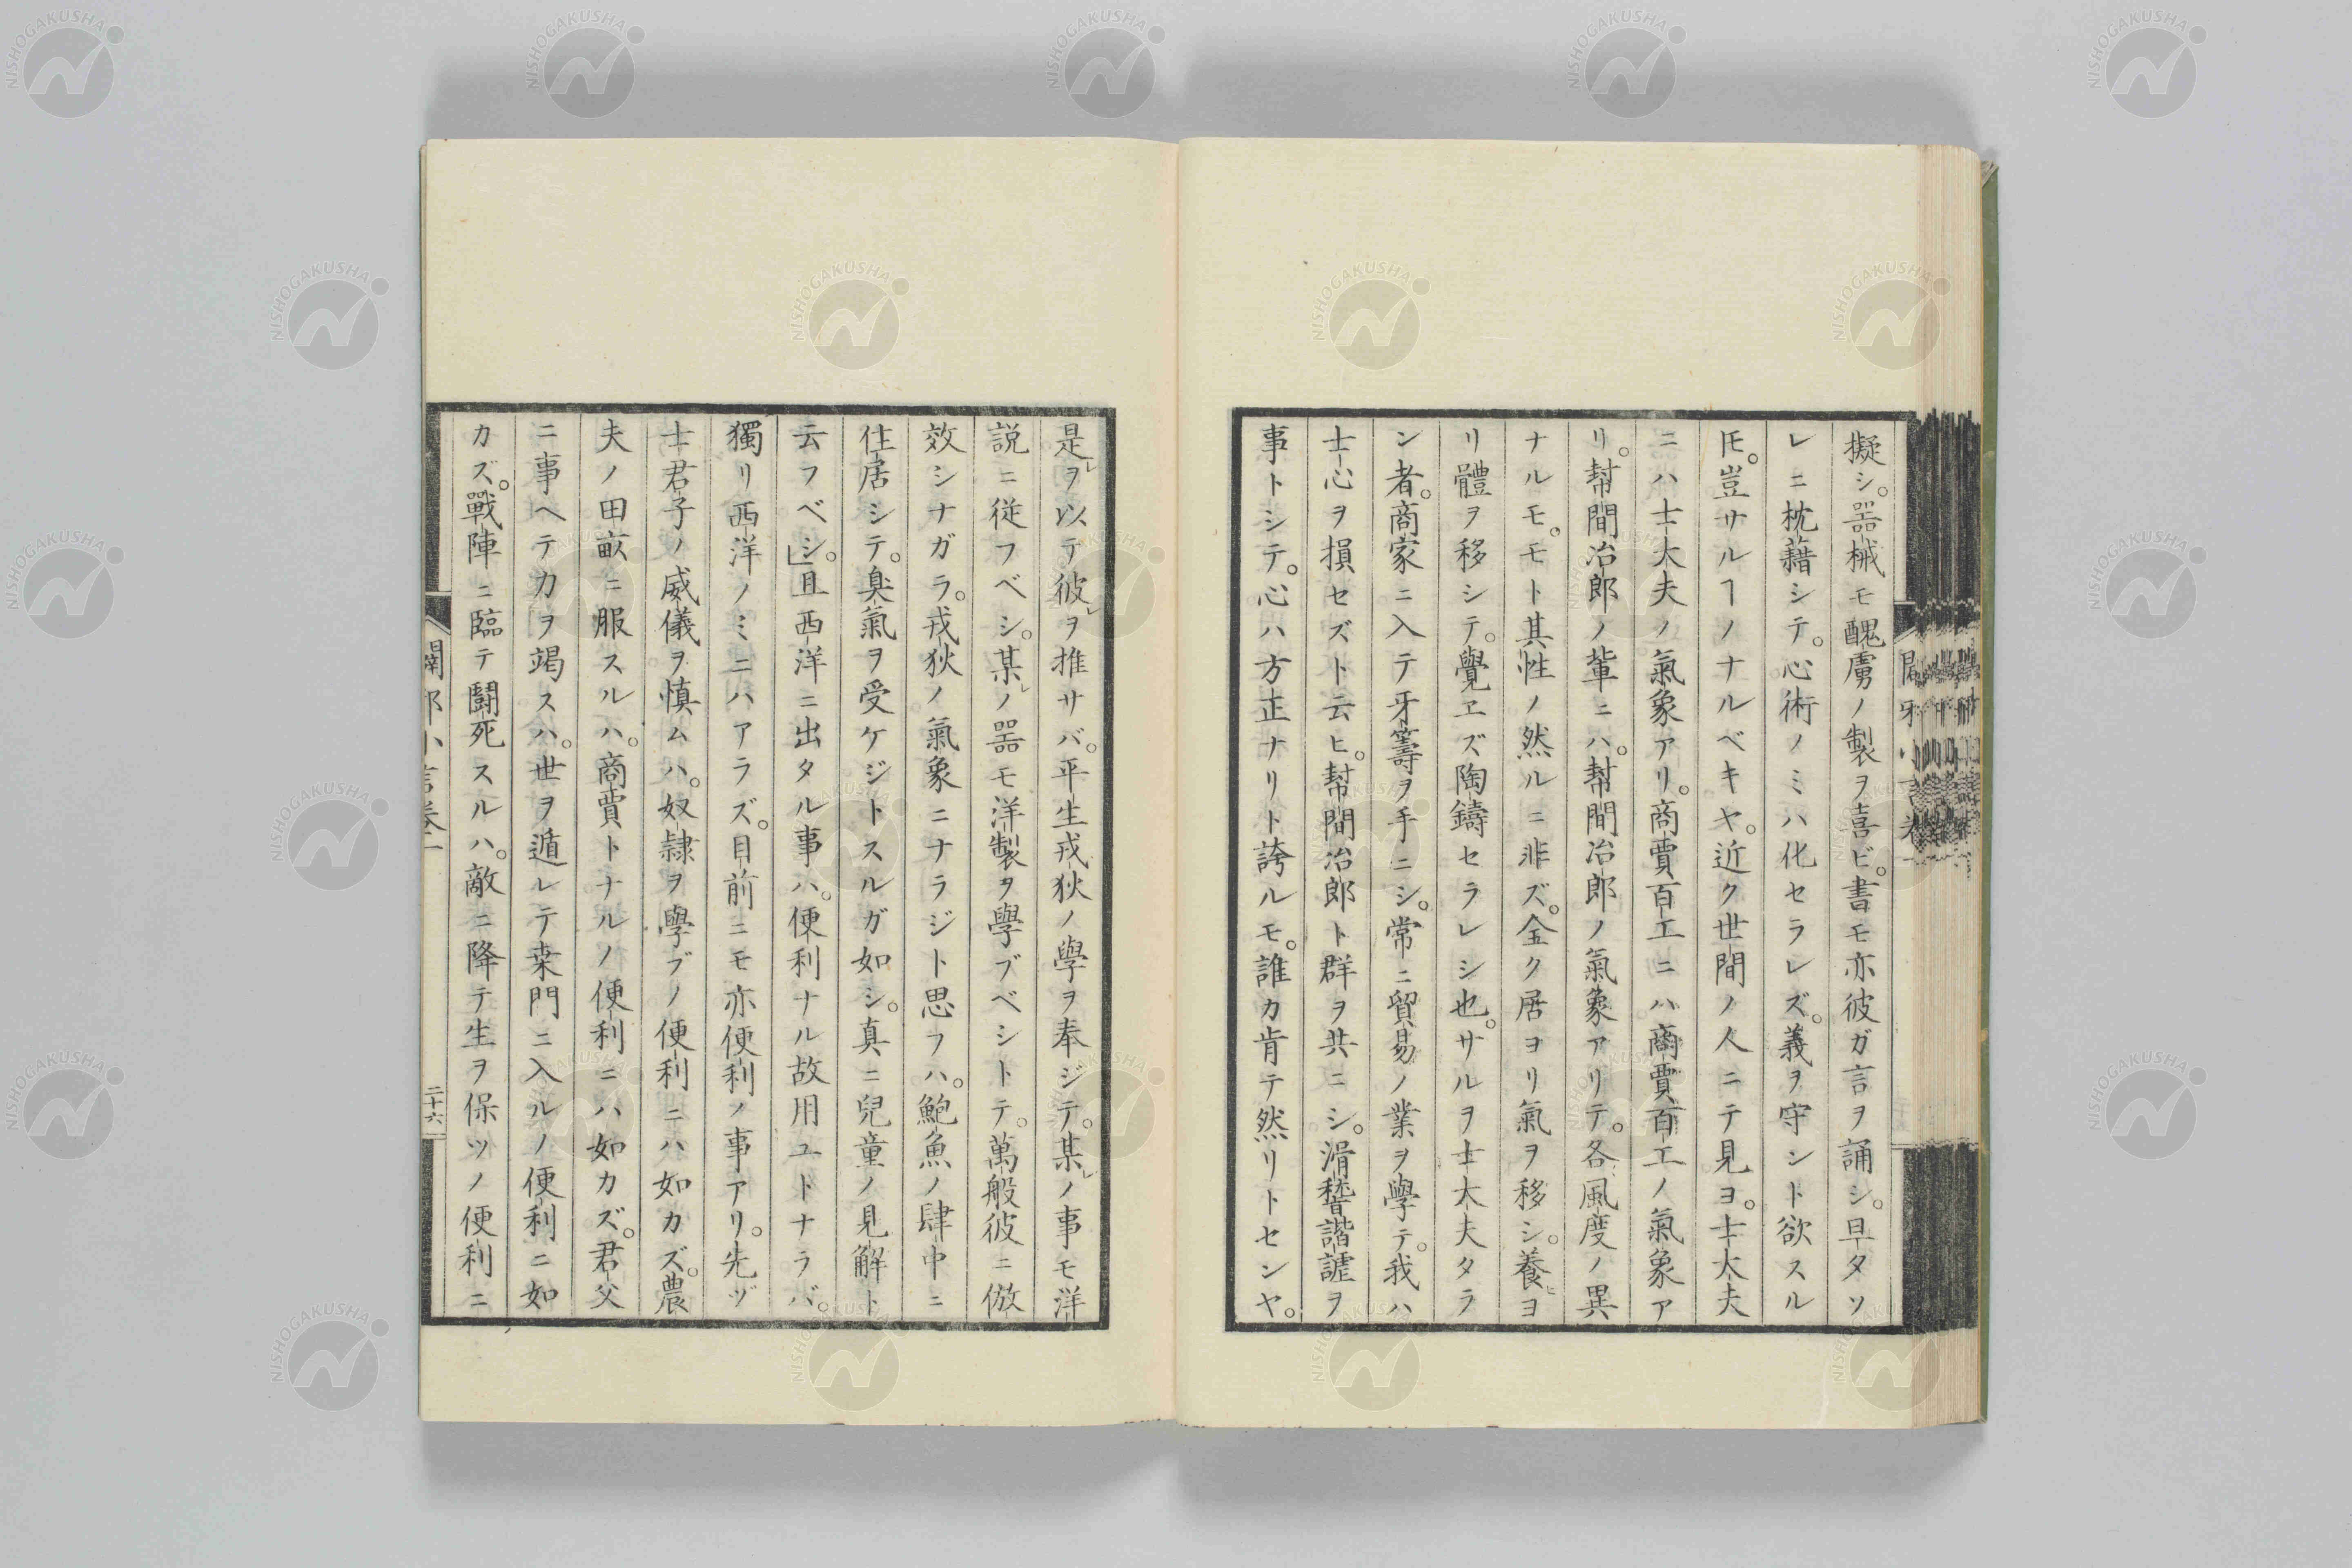 擬シ。器械モ醜虜ノ製ヲ喜ビ。書モ亦彼ガ言ヲ誦シ。旦タソ
レニ枕藉シテ。心術ノミハ化セラレズ。義ヲ守ント欲スル
𪜈。豈サルヿノナルベキヤ。近ク世間ノ人ニテ見ヨ。士大夫
ニハ士大夫ノ氣象アリ。商賈百工ニハ商賈百工ノ氣象ア
リ。幇間冶郎ノ輩ニハ。幇間冶郎ノ氣象アリテ。各風度ノ異
ナルモ。モト其性ノ然ルニ非ズ。全ク居ヨリ氣ヲ移シ。養ヒヨ
リ體ヲ移シテ。覺エズ陶鑄セラレシ也。サルヲ士大夫タラ
ン者。商家ニ入テ牙籌ヲ手ニシ。常ニ貿易ノ業ヲ學テ。我ハ
士心ヲ損セズト云ヒ。幇間冶郎ト群ヲ共ニシ。滑稽諧謔ヲ
事トシテ。心ハ方正ナリト誇ルモ。誰カ肯テ然リトセンヤ。
是レヲ以テ彼レヲ推サバ。平生戎狄ノ學ヲ奉ジテ。某レノ事モ洋
説ニ従フベシ。某レノ器モ洋製ヲ學ブベシトテ。萬般彼ニ倣
效シナガラ。戎狄ノ氣象ニナラジト思フハ。鮑魚ノ肆中ニ
住居シテ。臭氣ヲ受ケジトスルガ如シ。真ニ兒童ノ見解ト
云フベシ。」且西洋ニ出タル事ハ。便利ナル故用ユトナラバ。
獨リ西洋ノミニハアラズ。目前ニモ亦便利ノ事アリ。先ヅ
士君子ノ威儀ヲ慎ムハ。奴隷ヲ學ブノ便利ニハ如カズ。農
夫ノ田畝ニ服スルハ。商賈トナルノ便利ニハ如カズ。君父
ニ事ヘテ力ヲ竭スハ。世ヲ遁レテ桒門ニ入ルノ便利ニ如
カズ。戰陣ニ臨テ鬪死スルハ。敵ニ降テ生ヲ保ツノ便利ニ
闢邪小言卷
二十六
NISHOGAKUSHA